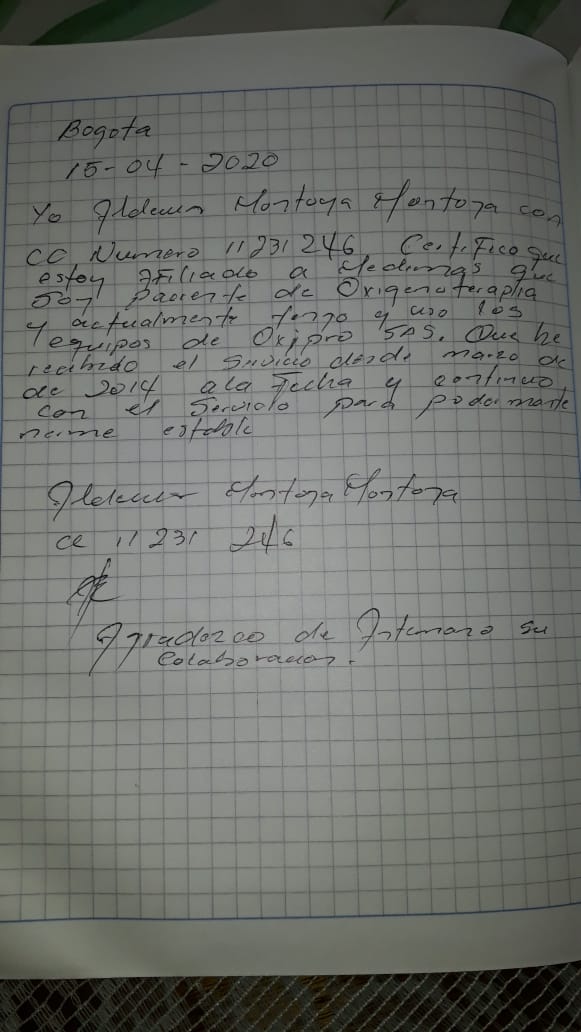 Bogota
15-04-2020
Yo Aldemar Montoya Montoya con
CC Numero 11231246. Certifico que
estoy afiliado a Medimas que
soy paciente de Oxigenoterapia
y actualmente tengo y uso los
equipos de Oxipro SAS. Que he
recibido el servicio desde marzo de
de 2014 ala fecha y continuo,
con el servicio para poder mante
nerme estable
Aldemar Montoya Montoya
CC 11 231 246
Agradezco de Antemano su
Colaboracion.